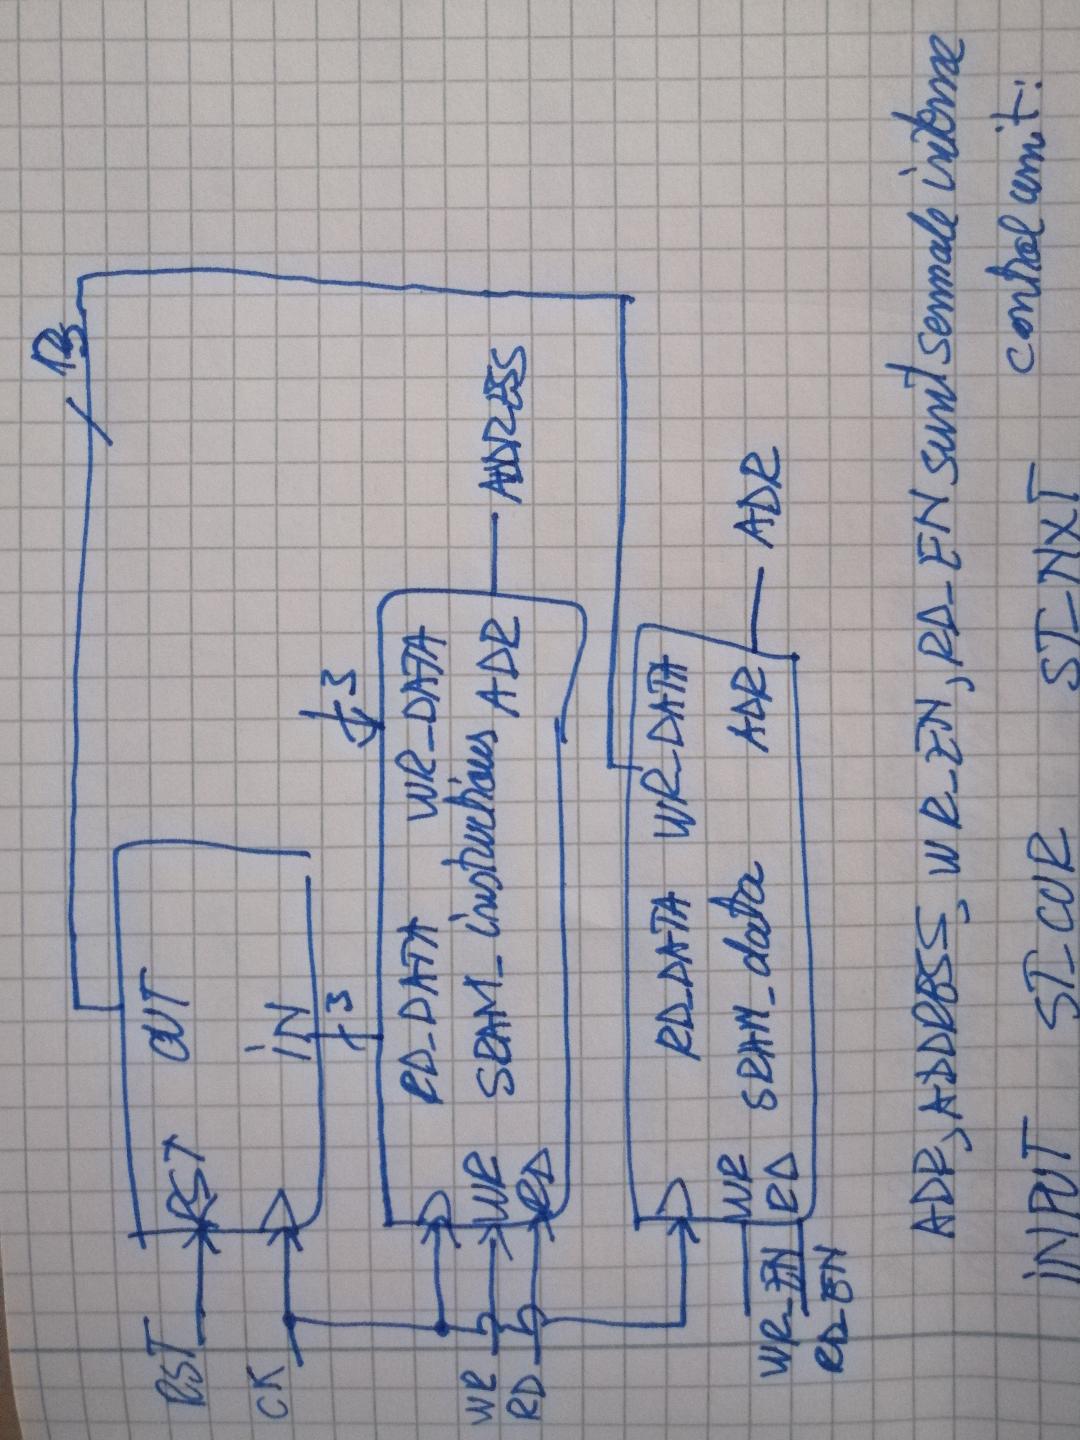 13
RST RST OUT
CK IN
3 3
RD_DATA WR_DATA
WR WR SRAM_instructions ADR ADDRESS
RD RD
RD_DATA WR_DATA
WR SRAM_data ADR ADR
WR_EN RD
RD_EN
ADR, ADDRESS, WR_EN, RD_EN sunt semnale interne
control unit:
INPUT ST_CUR ST_NXT